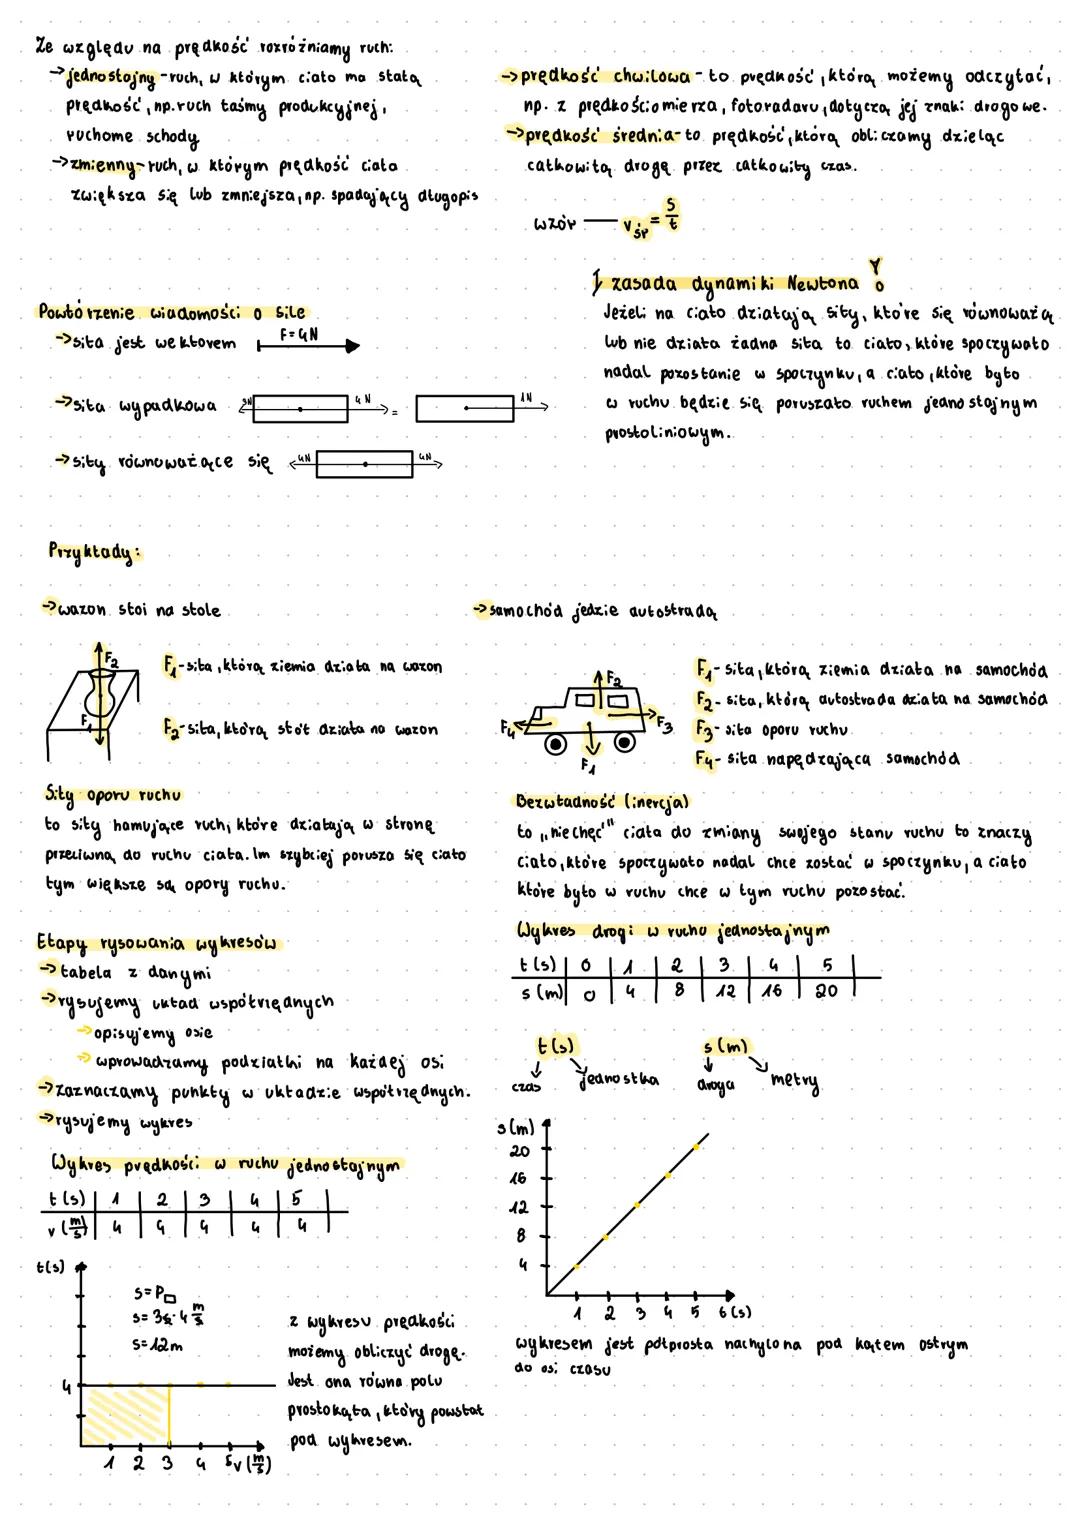 Ze względu na prędkość rozróżniamy ruch:
→jednostajny-ruch, w którym ciało ma stałą
prędkość, np. ruch taśmy produkcyjnej,
ruchome schody
→zmienny-ruch, w którym prędkość ciała
zwiększa się lub zmniejsza, np. spadający długopis
→prędkość chwilowa-to prędkość, którą możemy odczytać,
np. z prędkościomierza, fotoradaru, dotyczą jej znaki drogowe.
→prędkość średnia-to prędkość, którą obliczamy dzieląc
całkowitą drogę przez całkowity czas.
wzór — vśr = s/t
I zasada dynamiki Newtona !
Jeżeli na ciało działają siły, które się równoważą
lub nie działa żadna siła to ciało, które spoczywało
nadal pozostanie w spoczynku, a ciało, które było
w ruchu będzie się poruszało ruchem jednostajnym
prostoliniowym.
Powtórzenie wiadomości o sile
→siła jest wektorem F=4N
→siła wypadkowa 3N 4N = 1N
→siły równoważące się 4N 4N
Przykłady:
→wazon stoi na stole
F2
F1
F1-siła, którą ziemia działa na wazon
F2-siła, którą stół działa na wazon
→samochód jedzie autostradą
F2
F4 F3
F1
F1- siła, którą ziemia działa na samochód
F2- siła, którą autostrada działa na samochód
F3- siła oporu ruchu
F4- siła napędzająca samochód
Siły oporu ruchu
to siły hamujące ruch, które działają w stronę
przeciwną do ruchu ciała. Im szybciej porusza się ciało
tym większe są opory ruchu.
Bezwładność (inercja)
to „niechęć" ciała do zmiany swojego stanu ruchu to znaczy
ciało, które spoczywało nadal chce zostać w spoczynku, a ciało
które było w ruchu chce w tym ruchu pozostać.
Etapy rysowania wykresów
→tabela z danymi
→rysujemy układ współrzędnych
→opisujemy osie
→wprowadzamy podziałki na każdej osi
→zaznaczamy punkty w układzie współrzędnych.
→rysujemy wykres
Wykres prędkości w ruchu jednostajnym
t(s) 1 2 3 4 5
v(m/s) 4 4 4 4 4
t(s)
s=P□
s=3s·4 m/s
s=12m
4
1 2 3 4 5 v(m/s)
z wykresu prędkości
możemy obliczyć drogę.
Jest ona równa polu
prostokąta, który powstał
pod wykresem.
Wykres drogi w ruchu jednostajnym
t(s) 0 1 2 3 4 5
s(m) 0 4 8 12 16 20
t(s) s(m)
czas jednostka droga metry
s(m)
20
16
12
8
4
1 2 3 4 5 6(s)
wykresem jest półprosta nachylona pod kątem ostrym
do osi czasu